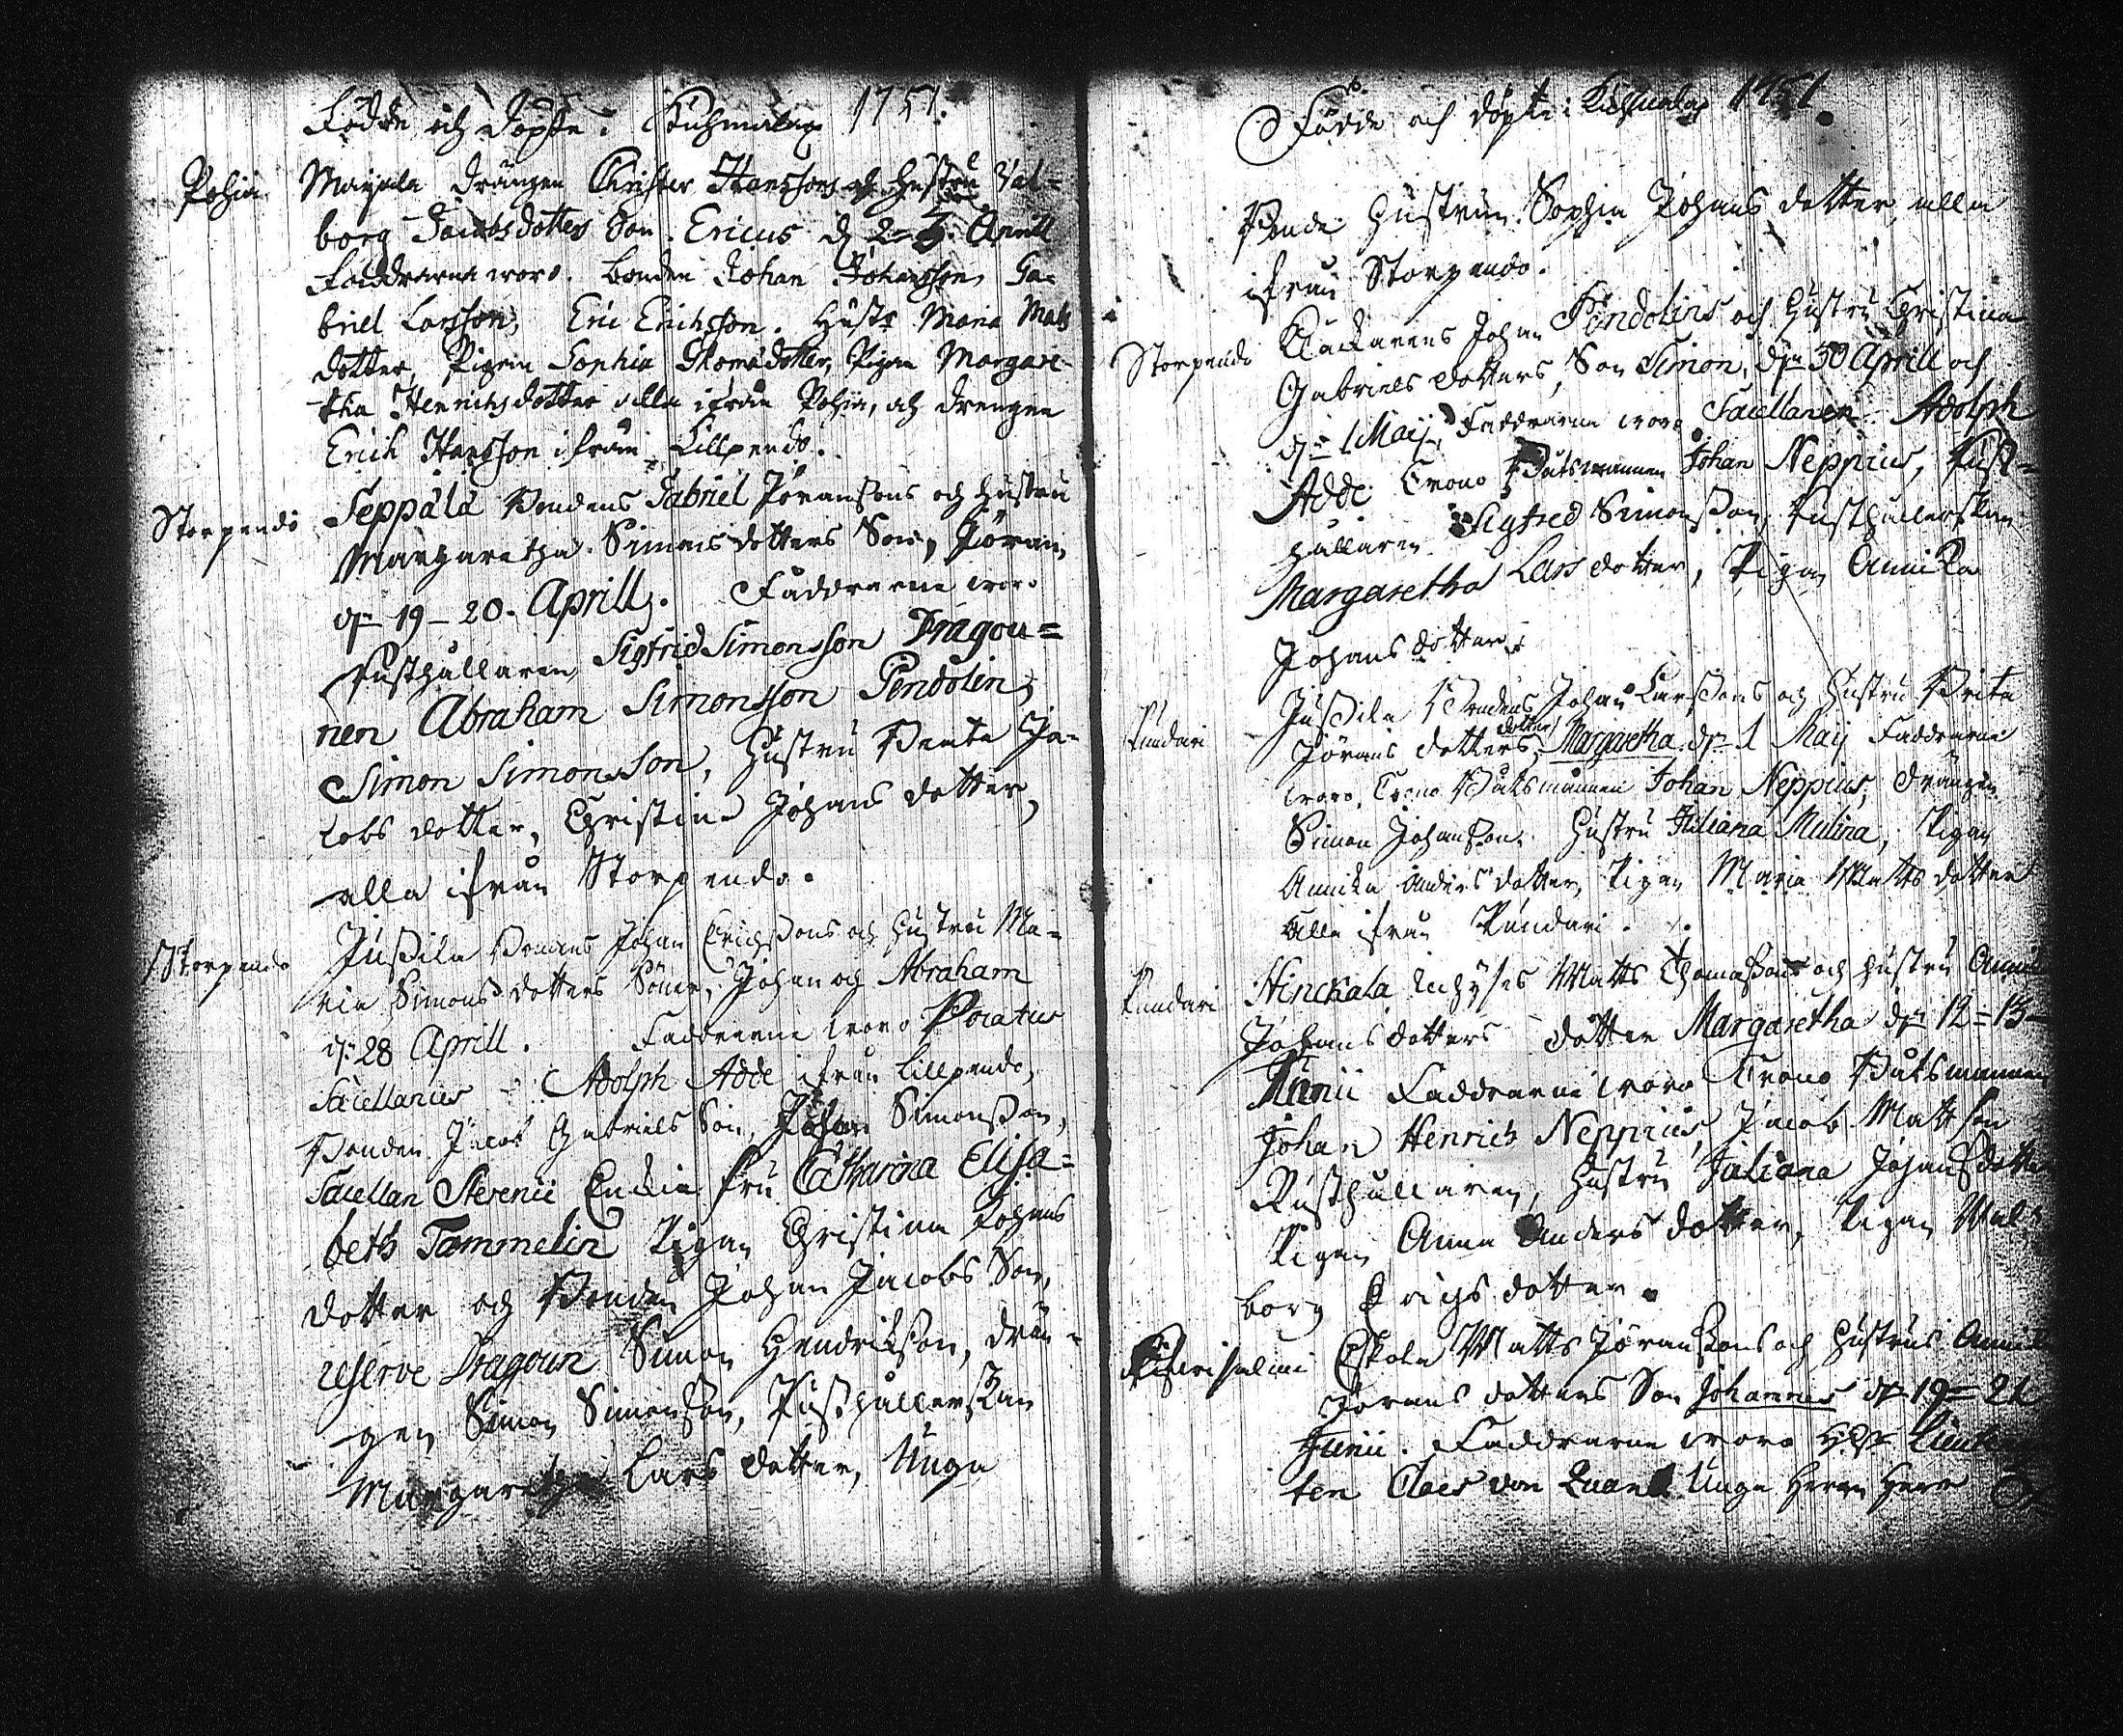 Födde och Döpte i Kuhmalax 1751.
Pohja Mayala Drängen Christer Hanssons och Hustru Val=
borg Jacobsdotters Son Ericus d. 2=3 Aprill
Faddrarne woro. Bonden Johan Johansson, Ga=
briel Larsson, Eric Erichsson. Hustr Maria Mats
dotter, Pigan Sophia Thomsdotter, Pigan Margare-
tha Henrichsdotter alla ifrån Pohja, och Drengen
Erich Hansson ifrån Lillpendo.
Storpendo Seppälä Bondens Gabriel Jöranssons och Hustru
Margaretha Simonsdotters Son, Jöran,
dn 19-20. Aprill. Faddrarne woro
Rusthållaren Sigfrid Simonsson Dragou=
nen Abraham Simonsson Pendolin,
Simon Simonsson, Hustru Beata Ja-
cobs dotter, Christina Johans dotter,
alla ifrån Storpendo.
Storpendo Jussila Bondens Johan Erichssons och Hustru Ma=
ria Simons dotters Söner, Johan och Abraham
dn 28 Aprill. Faddrarne woro
Sacellanus Adolph Adde ifrån Lillpendo,
Bonden Jacob Gabriels Son, Johan Simonsson,
Sacellan Stevenii Enckia Fru Catharina Elisa=
beth Tammelin Pigan Christina Johans
dotter och Bonden Johan Jacobs Son,
reserve Dragoun Simon Hendriksson, Drän=
gen Simon Simonsson, Rusthållerskan
Margaretha Lars dotter, Unga
Födde och döpte i Kuhmalax 1751
Bonde Hustrun Sophia Johans dotter alla
ifrån Storpendo.
Storpendo Klockarens Johan Pendolins och Hustru Christina
Gabriels dotters, Son Simon, dn 30 Aprill och
dn 1 Maij, Faddrarne woro Sacellanen Adolph
Adde Crono Båtsmannen Johan Neppius, Rust=
hållaren Sigfred Simonsson, Rusthållerskan
Margaretha Lars dotter, Pigan Annika
Johans dotter.
Rundari Jussila Bondens Johan Larssons och Hustru Brita
Jörans dotters, dotter Margaretha dn 1 Maij Faddrarne
woro, Crono Båtsmannen Johan Neppius, Drängen
Simon Johansson. Hustru Juliana Mulina, Pigan
Annika Anders dotter, Pigan Maria Matts dotter
Alla ifrån Rundari.
Rundari Hinckala Inhyses Matts Thomassons och Hustru
Johans dotters dotter Margaretha dn 12=13-
Junii Faddrarne woro Crono Båtsmannen
Johan Henrich Neppius, Jacob Matsson
Rusthållaren, Hustru Juliana Johans dotter
Pigan Anna Anders dotter, Pigan Wal=
borg Erigs dotter.
Eskola Matts Jöranssons och Hustrus
Jörans dotters Son Johannes dn 19=21
Junii. Faddrarne woro
ten Claes von Unga Herrn Herr